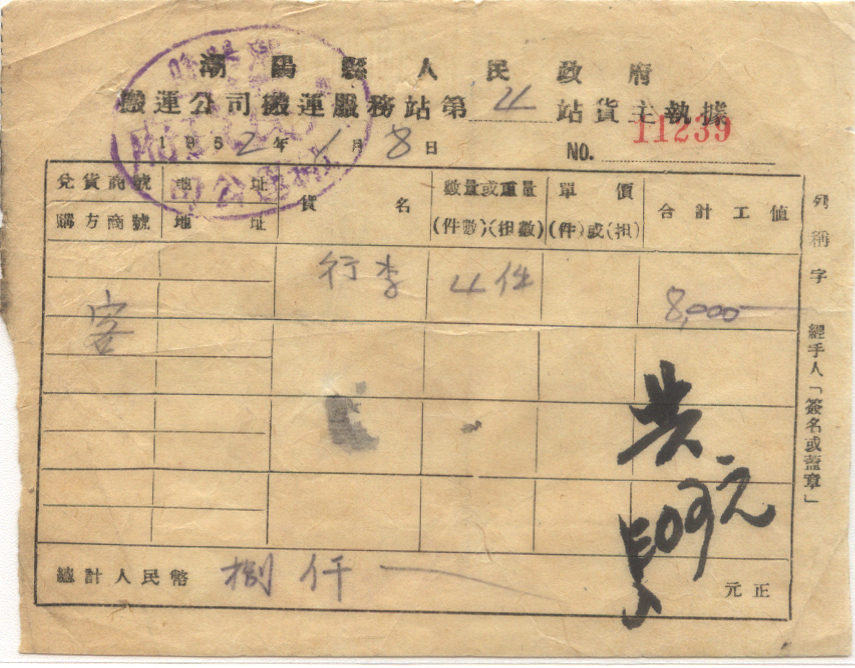 潮陽縣人民政府
搬運公司搬運服務站第4站貨主執據
1952年1月8日 NO. 11239
兌貨商號 地址 貨名 數量或重量 單價 合計工值
購方商號 地址 (件數)(担數) (件)或(担)
客 行李 4件 8,000
共
元
總計人民幣 捌仟 元正
列稱字
經手人「簽名或蓋章」